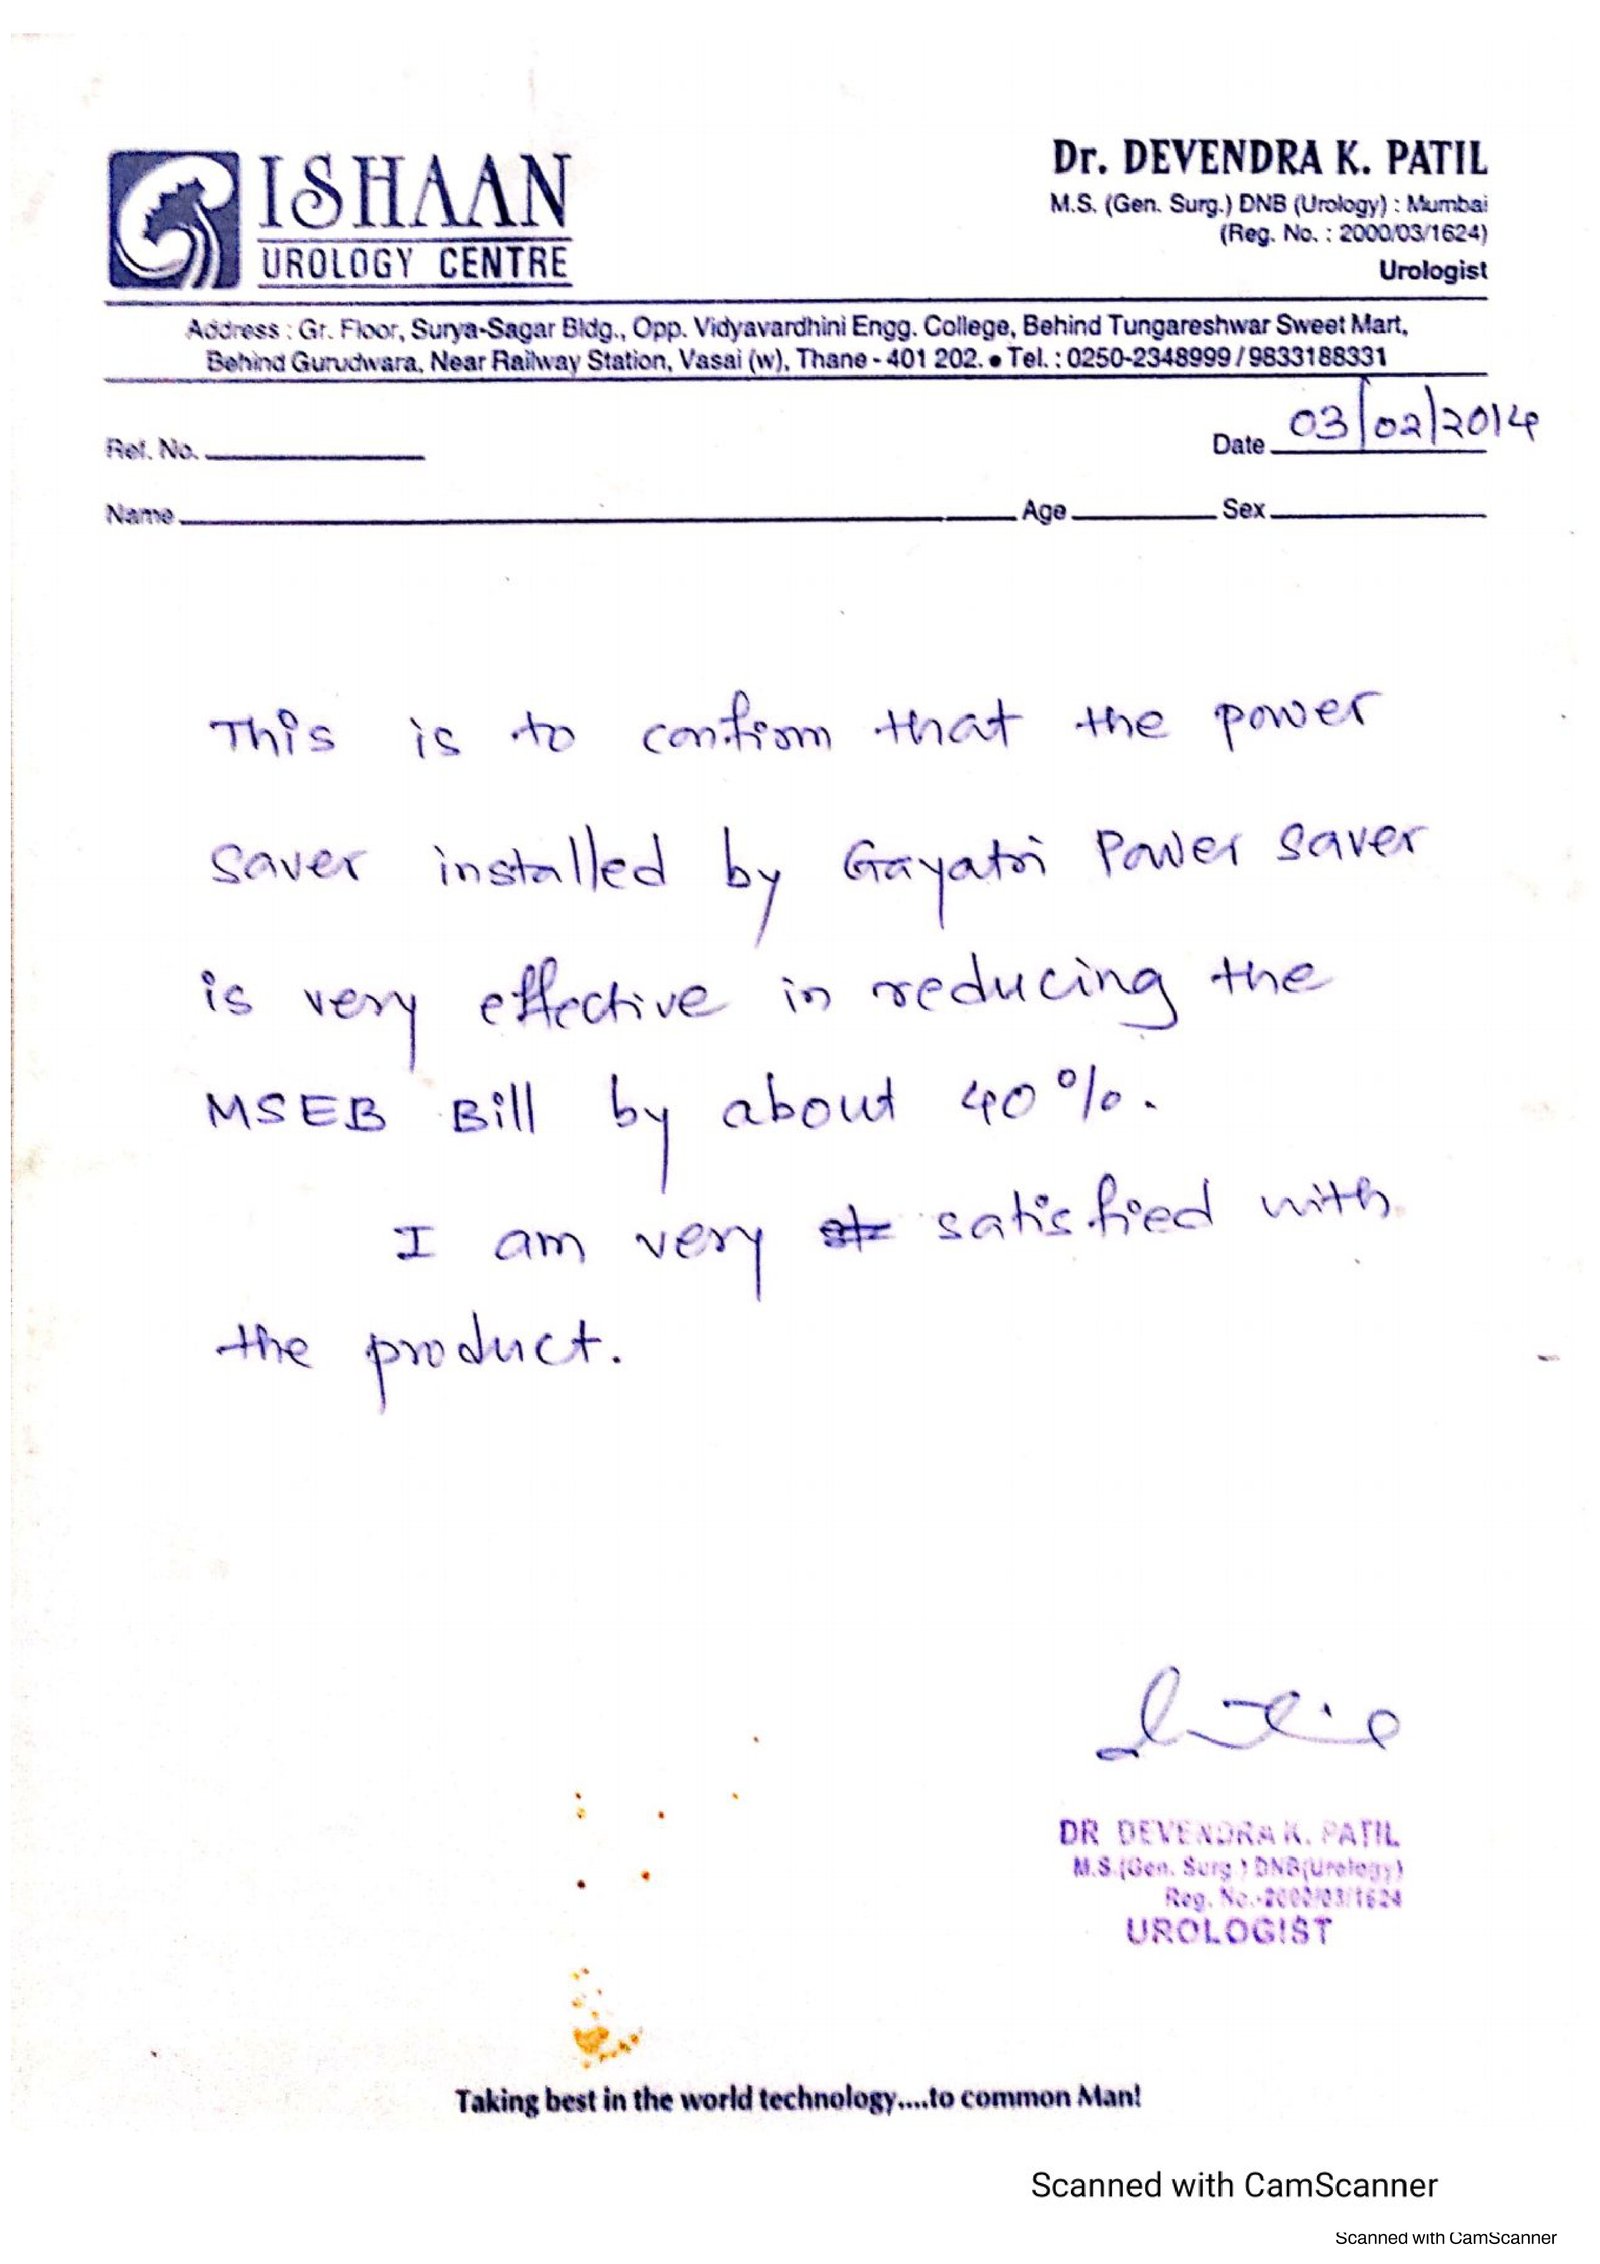 ISHAAN
UROLOGY CENTRE
Dr. DEVENDRA K. PATIL
M.S. (Gen. Surg.) DNB (Urology) : Mumbai
(Reg. No. : 2000/03/1624)
Urologist
Address : Gr. Floor, Surya-Sagar Bldg., Opp. Vidyavardhini Engg. College, Behind Tungareshwar Sweet Mart,
Behind Gurudwara, Near Railway Station, Vasai (w), Thane - 401 202. ● Tel. : 0250-2348999 / 9833188331
Ref. No. Date 03/02/2014
Name Age Sex
This is to confirm that the power
saver installed by Gayatri Power saver
is very effective in reducing the
MSEB Bill by about 40%.
I am very satisfied with
the product.
DR DEVENDRA K. PATIL
M.S.(Gen. Surg.) DNB(Urology)
Reg. No.-2000/03/1624
UROLOGIST
Taking best in the world technology....to common Man!
Scanned with CamScanner
Scanned with CamScanner